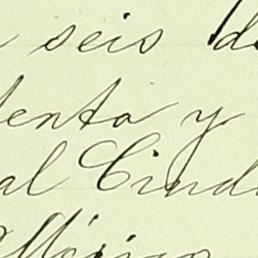 seis de
enta y
al Ciud
México